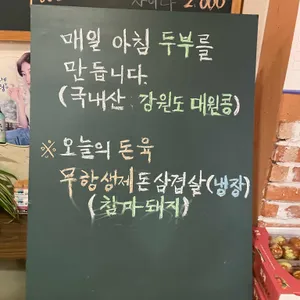 2,000
매일 아침 두부를
만듭니다.
(국내산 : 강원도 대원콩)
※ 오늘의 돈육
무항생제돈 삼겹살(냉장)
(참마돼지)